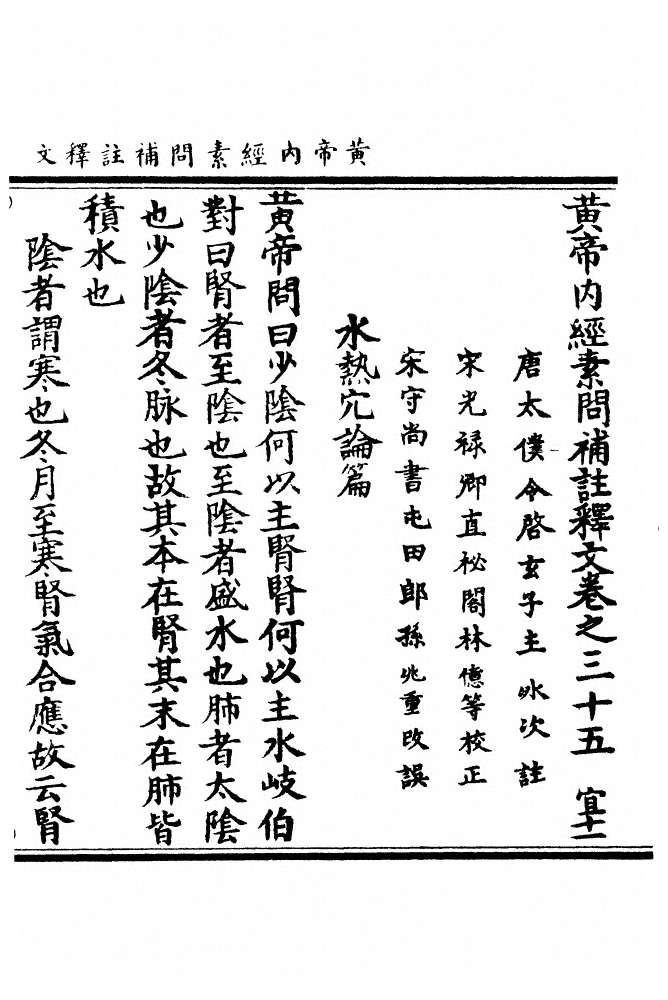 黃帝內經素問補註釋文
黃帝内經素問補註釋文卷之三十五 宜十一
唐太僕令啓玄子王冰次註
宋光祿卿直祕閣林億等校正
宋守尚書屯田郎孫兆重改誤
水熱穴論篇
黃帝問曰少陰何以主腎腎何以主水岐伯
對曰腎者至陰也至陰者盛水也肺者太陰
也少陰者冬脉也故其本在腎其末在肺皆
積水也
陰者謂寒也冬月至寒腎氣合應故云腎